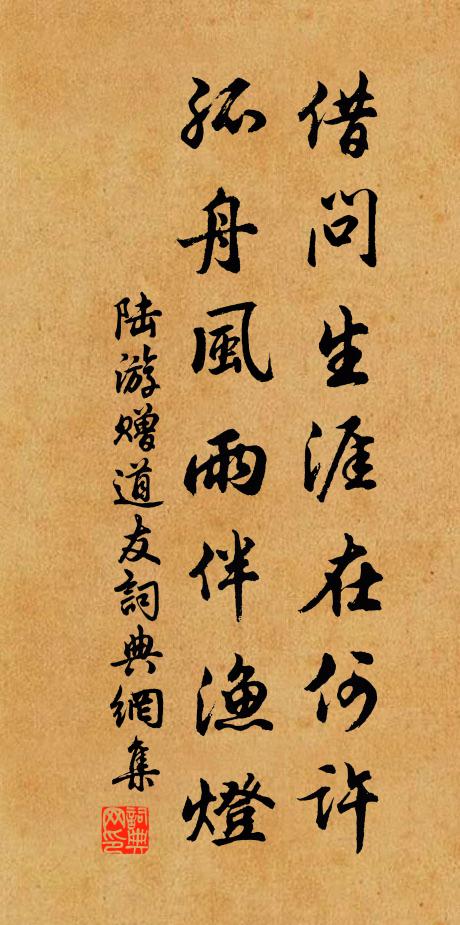 借問生涯在何許
孤舟風雨伴漁燈
陸游贈道友詞典網集
詞典
网印